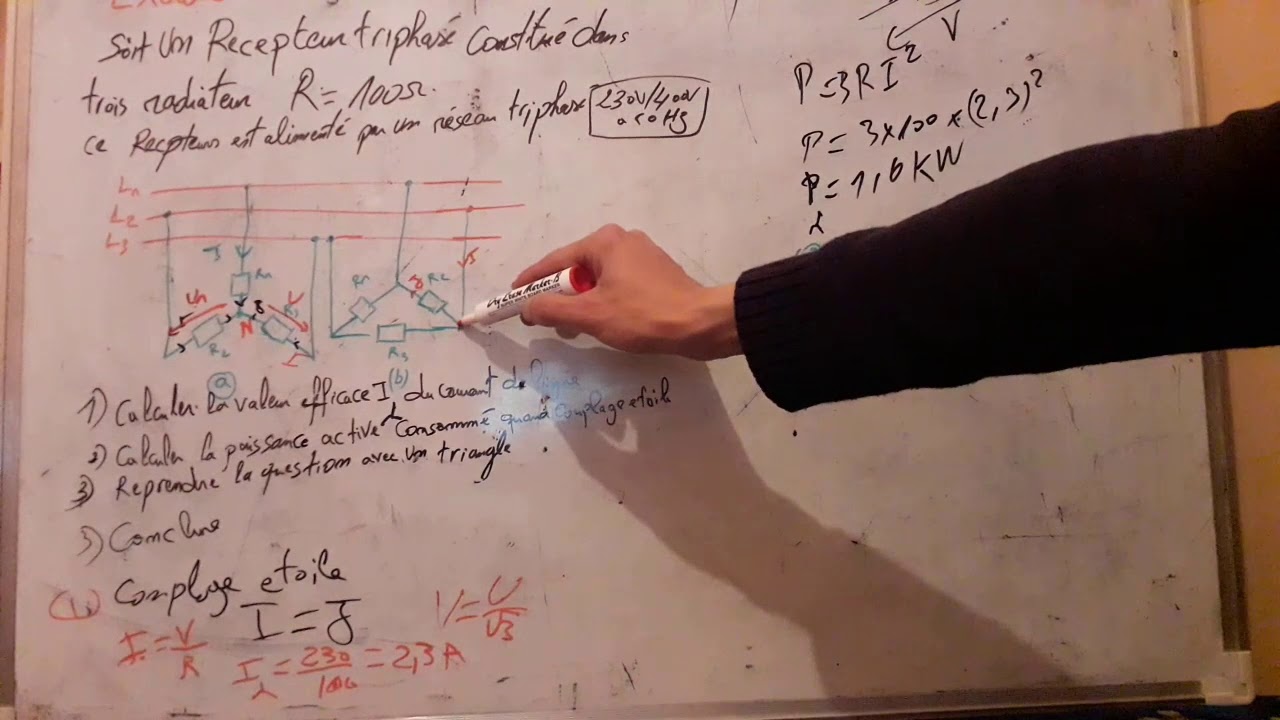 Soit Un Recepteur triphasé Constitué dans
trois radiateur R = 100Ω.
ce Recepteur est alimenté par un réseau triphasé
230V/400V
a 50Hg
L1
L2
L3
J
R1
Un
V
R2
N
R3
I
a
R1
R2
J
R3
(b)
1) Calculer la valeur efficace I du courant de ligne
2) Calculer la puissance active Consommé quand Couplage etoile
3) Reprendre la question avec un triangle
3) Conclure
(1) Couplage etoile
I = J
I = V/R
V = U/√3
I⅄ = 230/100 = 2,3 A
V
P = 3RI²
P = 3x100 x (2,3)²
P⅄ = 1,6 KW
Dry Erase Marker